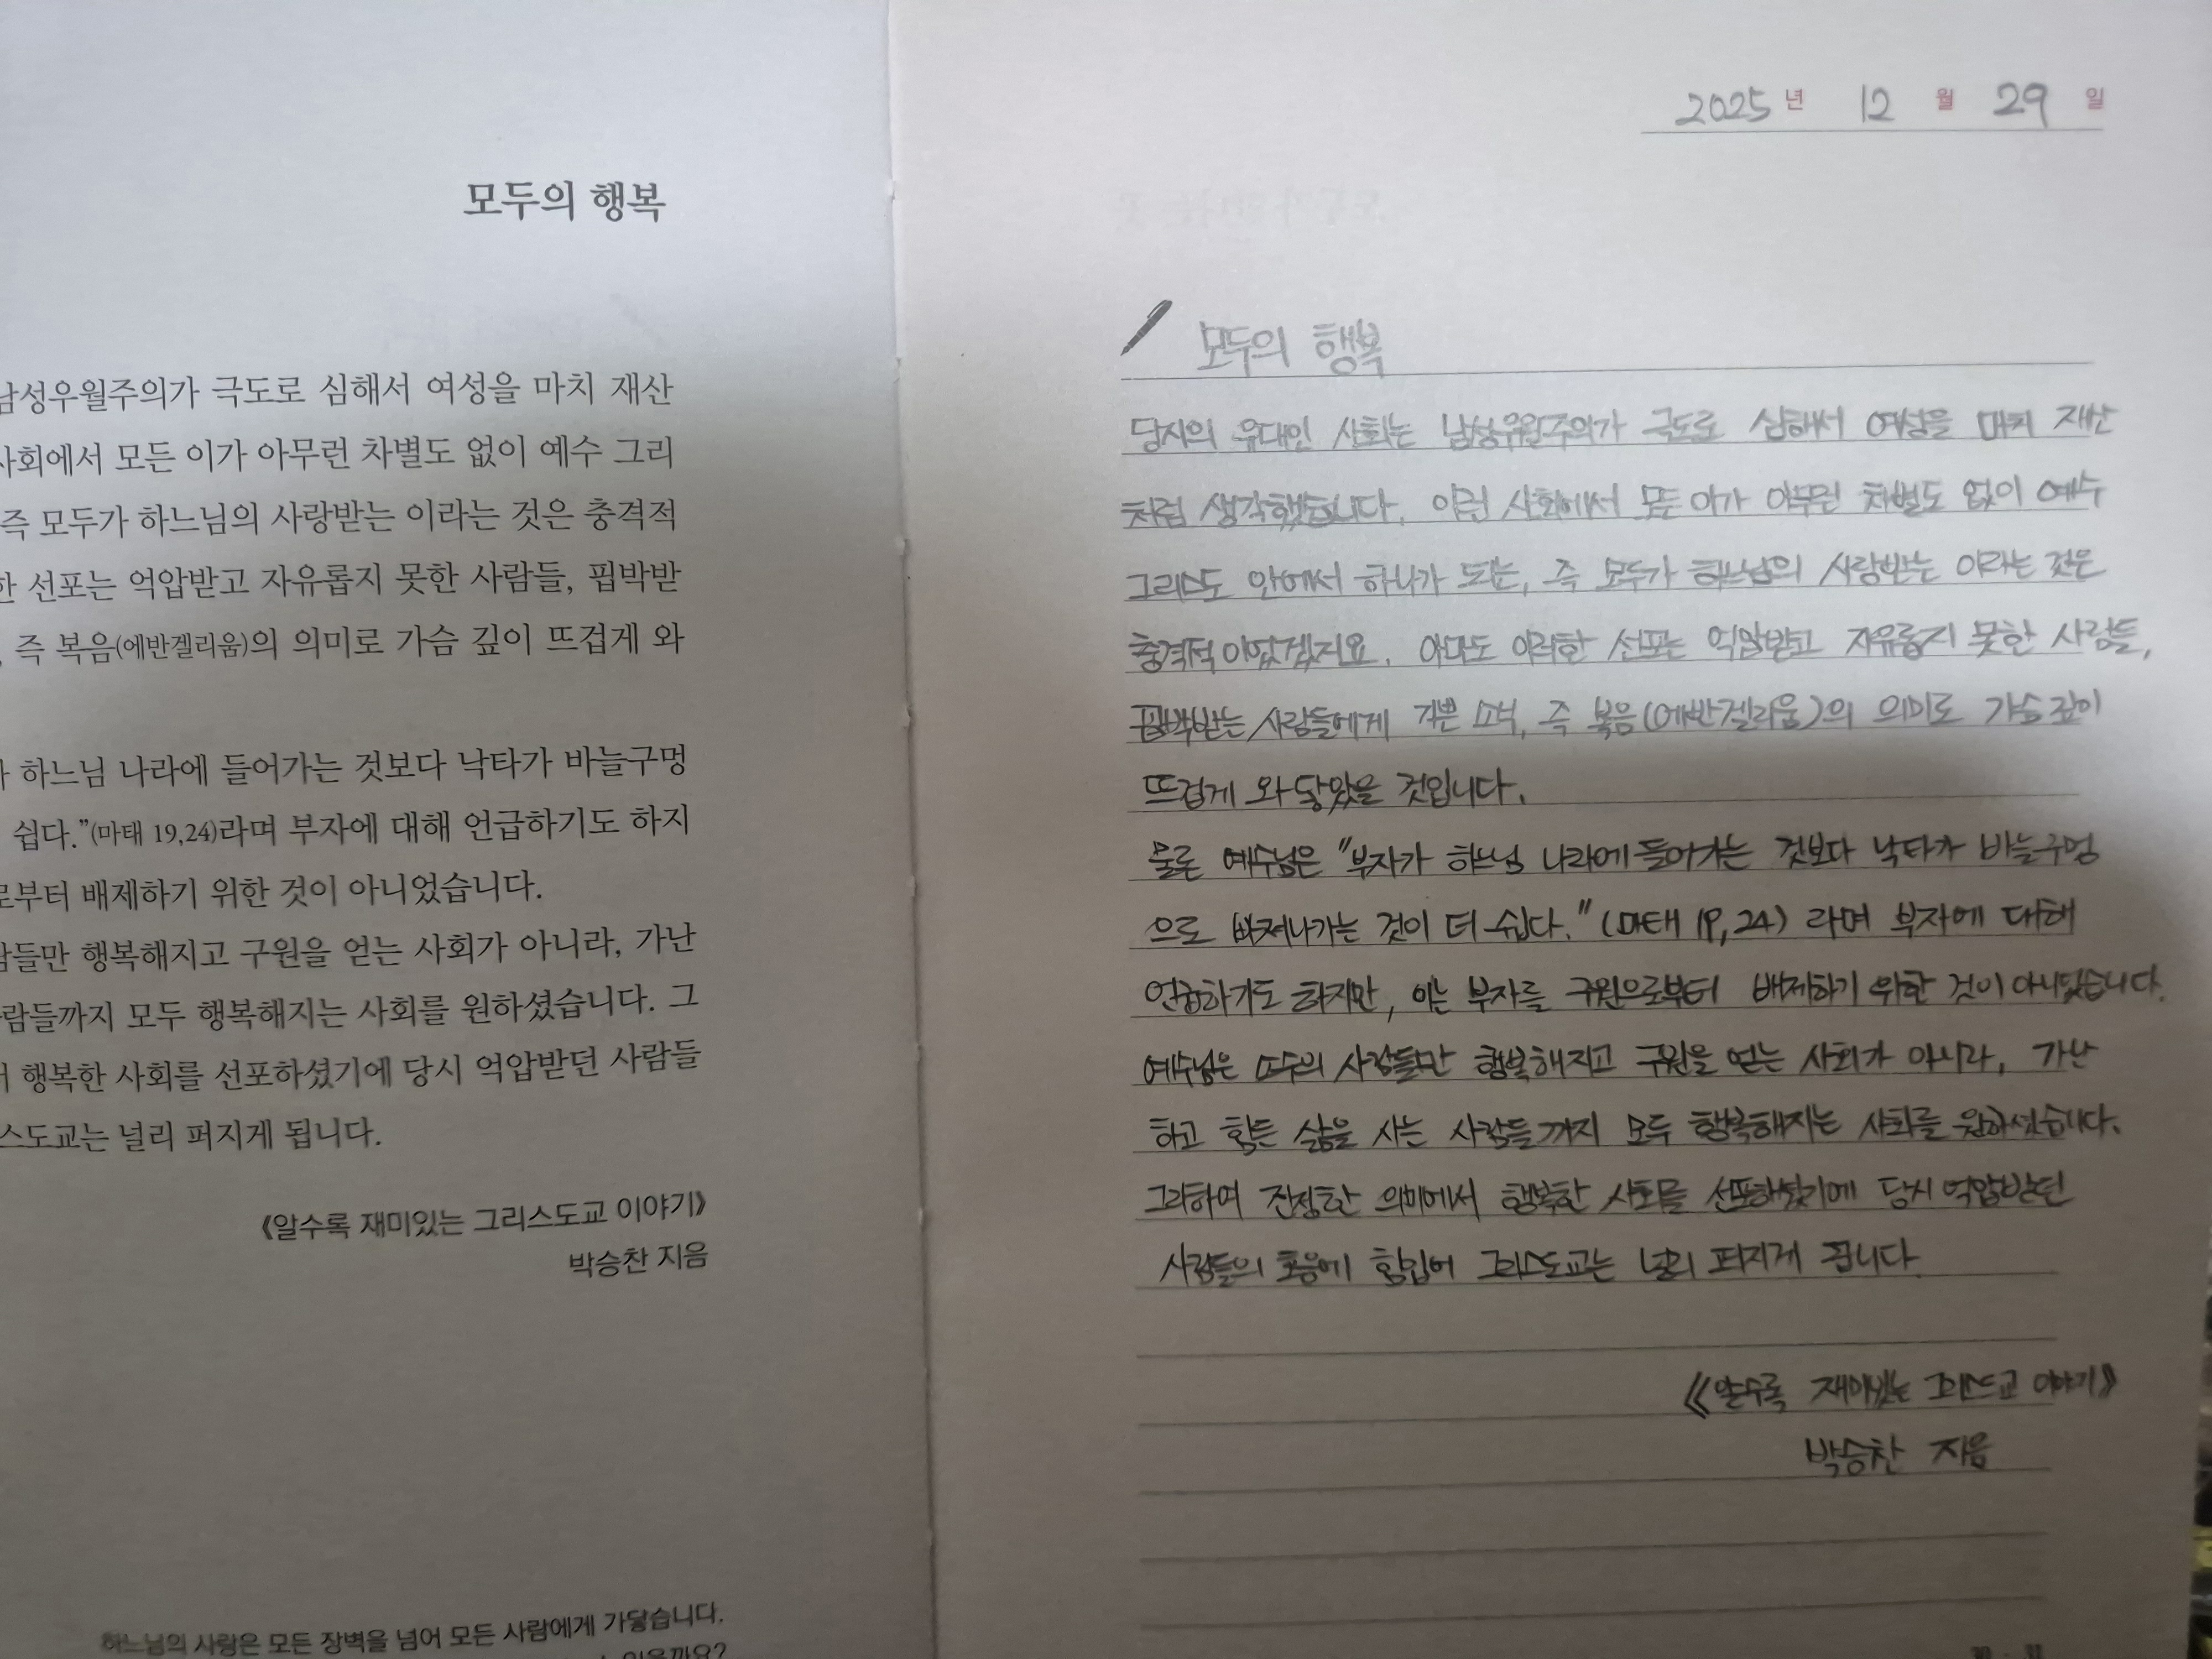 모두의 행복
남성우월주의가 극도로 심해서 여성을 마치 재산
사회에서 모든 이가 아무런 차별도 없이 예수 그리
즉 모두가 하느님의 사랑받는 이라는 것은 충격적
한 선포는 억압받고 자유롭지 못한 사람들, 핍박받
, 즉 복음(에반겔리움)의 의미로 가슴 깊이 뜨겁게 와
하느님 나라에 들어가는 것보다 낙타가 바늘구멍
쉽다.”(마태 19,24)라며 부자에 대해 언급하기도 하지
로부터 배제하기 위한 것이 아니었습니다.
람들만 행복해지고 구원을 얻는 사회가 아니라, 가난
사람들까지 모두 행복해지는 사회를 원하셨습니다. 그
행복한 사회를 선포하셨기에 당시 억압받던 사람들
스도교는 널리 퍼지게 됩니다.
《알수록 재미있는 그리스도교 이야기》
박승찬 지음
하느님의 사랑은 모든 장벽을 넘어 모든 사람에게 가닿습니다.
2025년 12월 29일
모두의 행복
당시의 유대인 사회는 남성우월주의가 극도로 심해서 여성을 마치 재산
처럼 생각했습니다. 이런 사회에서 모든 이가 아무런 차별도 없이 예수
그리스도 안에서 하나가 되는, 즉 모두가 하느님의 사랑받는 이라는 것은
충격적이었겠지요. 아마도 이러한 선포는 억압받고 자유롭지 못한 사람들,
핍박받는 사람들에게 기쁜 소식, 즉 복음(에반겔리움)의 의미로 가슴 깊이
뜨겁게 와닿았을 것입니다.
물론 예수님은 "부자가 하느님 나라에 들어가는 것보다 낙타가 바늘구멍
으로 빠져나가는 것이 더 쉽다." (마태 19,24) 라며 부자에 대해
언급하기도 하지만, 이는 부자를 구원으로부터 배제하기 위한 것이 아니었습니다.
예수님은 소수의 사람들만 행복해지고 구원을 얻는 사회가 아니라, 가난
하고 힘든 삶을 사는 사람들까지 모두 행복해지는 사회를 원하셨습니다.
그리하여 진정한 의미에서 행복한 사회를 선포하셨기에 당시 억압받던
사람들의 호응에 힘입어 그리스도교는 널리 퍼지게 됩니다.
《알수록 재미있는 그리스도교 이야기》
박승찬 지음